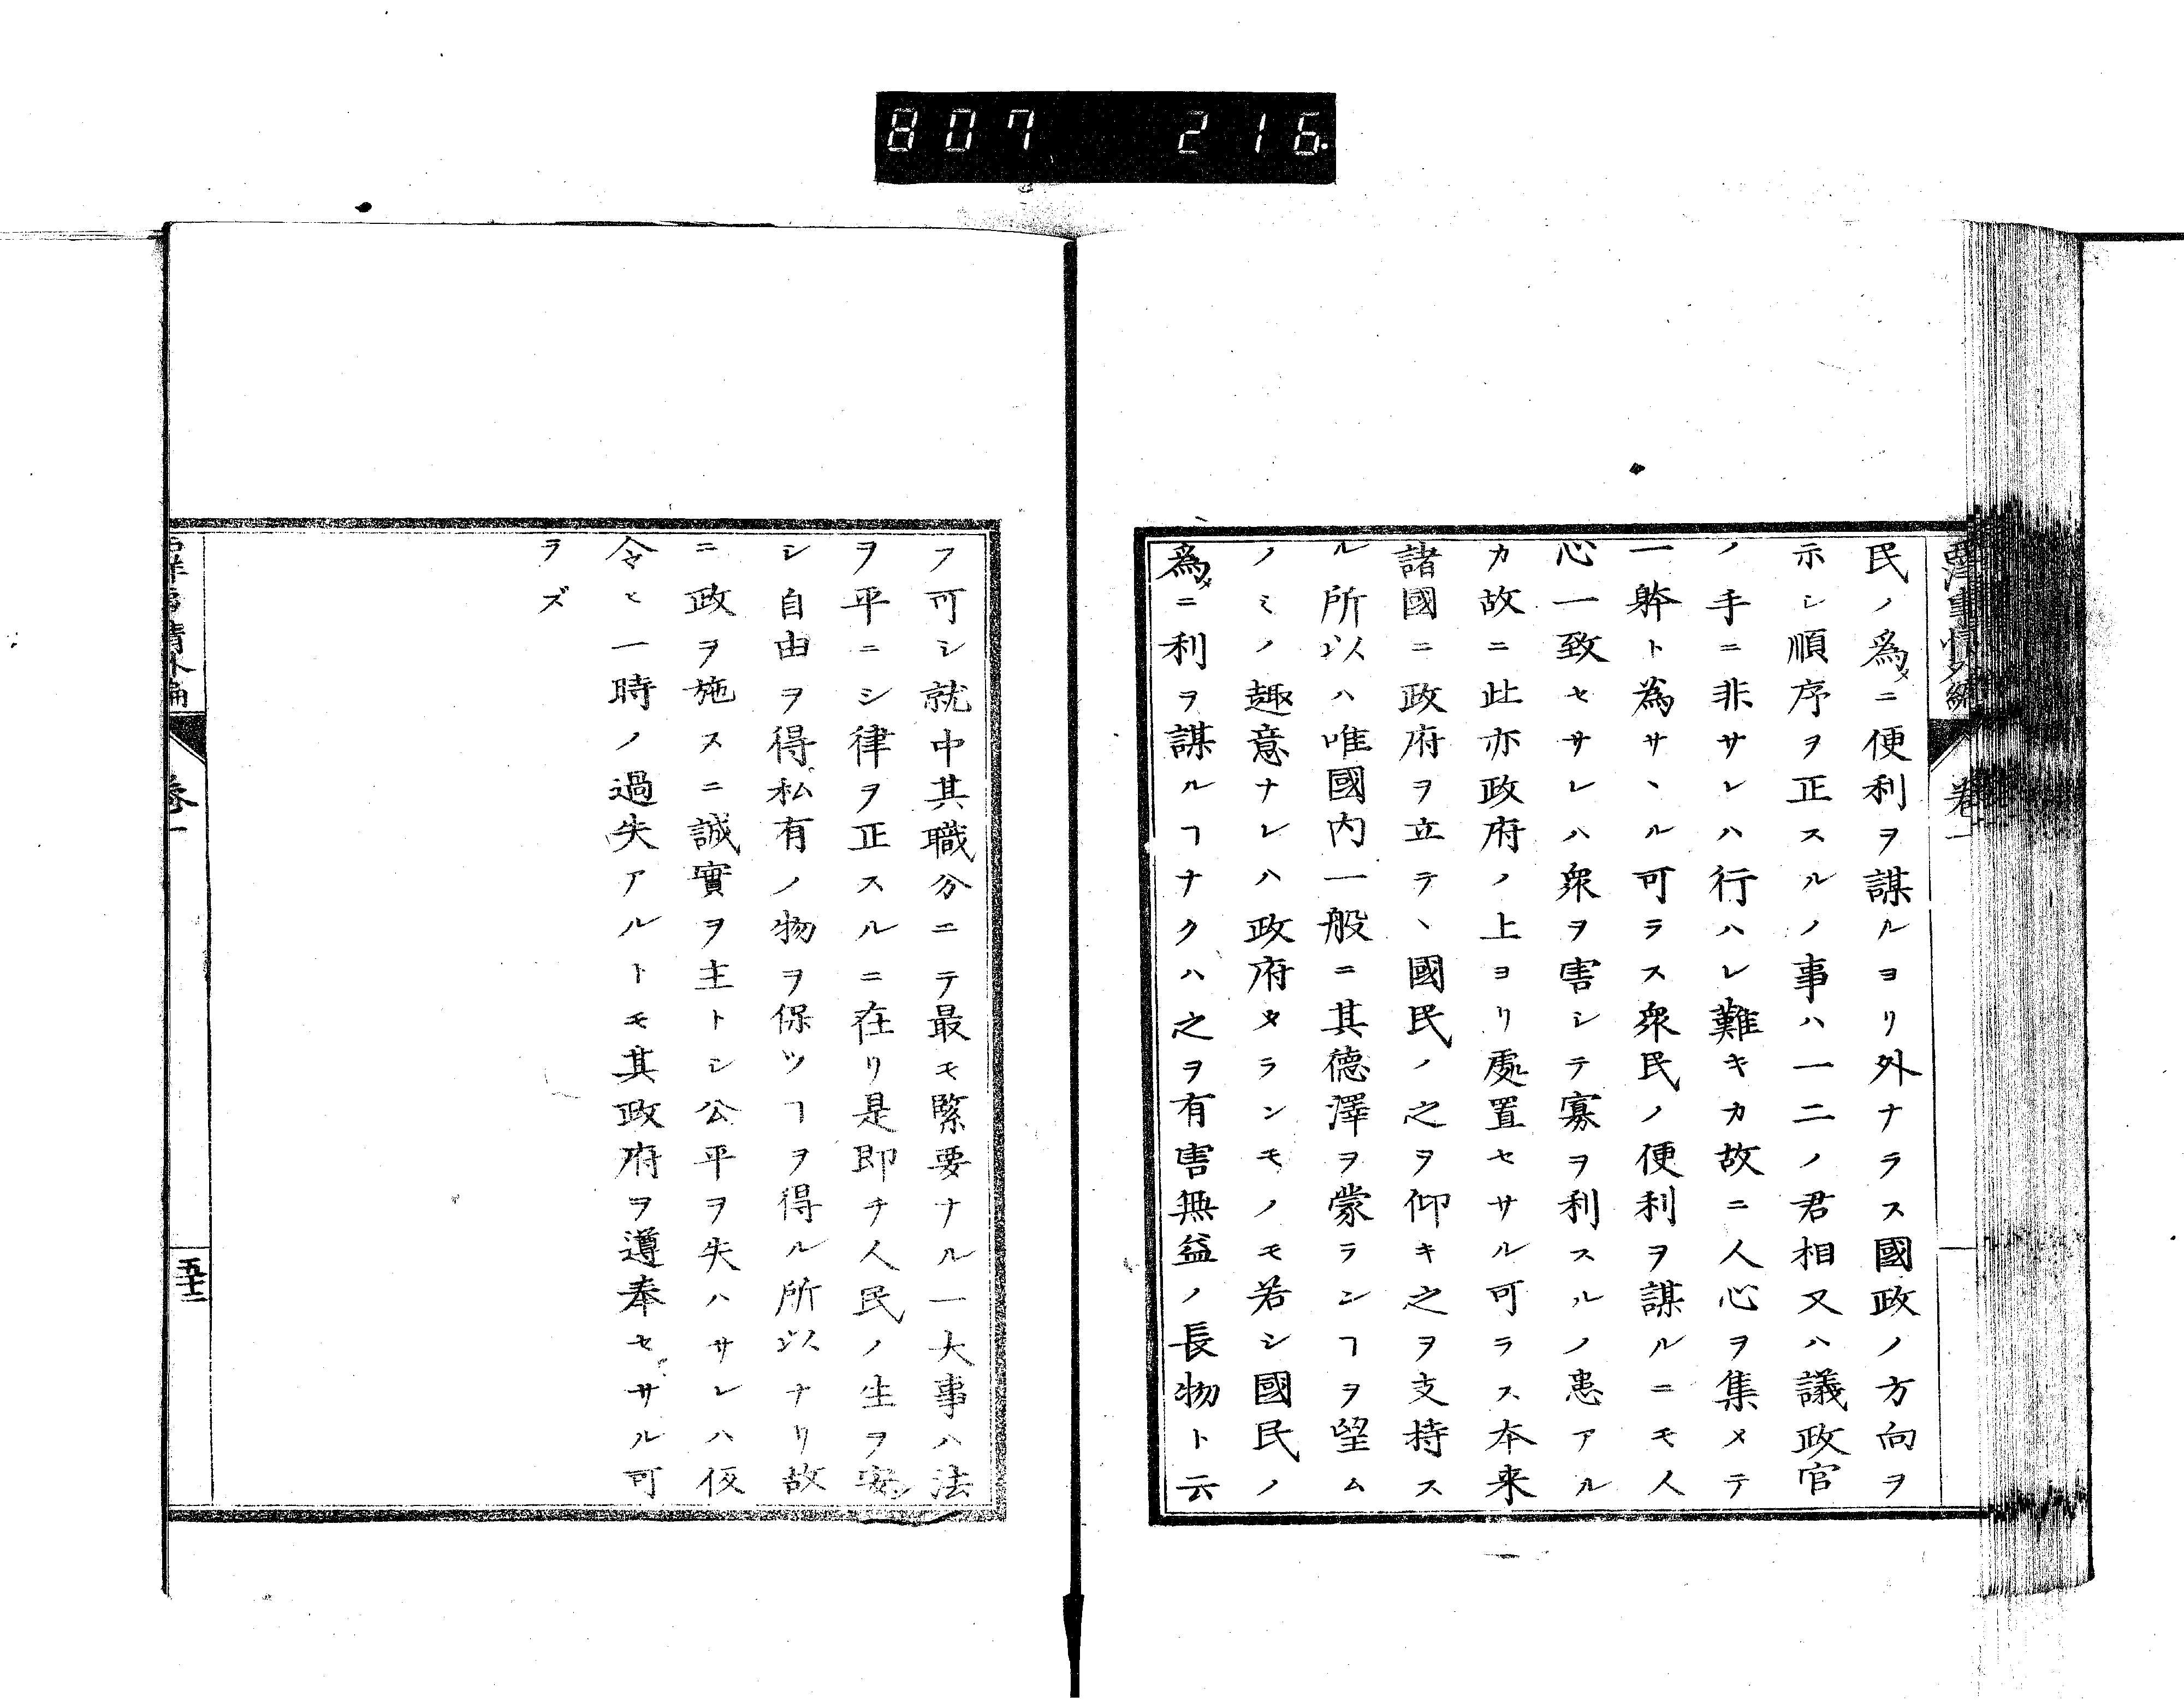 807 216
西洋事情外編 卷一
民ノ爲メニ便利ヲ謀ルヨリ外ナラス國政ノ方向ヲ
示シ順序ヲ正スルノ事ハ一二ノ君相又ハ議政官
ノ手ニ非サレハ行ハレ難キカ故ニ人心ヲ集メテ
一躰ト為サヽル可ラス衆民ノ便利ヲ謀ルニモ人
心一致セサレハ衆ヲ害シテ寡ヲ利スルノ患アル
カ故ニ此亦政府ノ上ヨリ處置セサル可ラス本来
諸國ニ政府ヲ立テ、國民ノ之ヲ仰キ之ヲ支持ス
ル所以ハ唯國内一般ニ其德澤ヲ蒙ランヿヲ望ム
ノミノ趣意ナレハ政府タランモノモ若シ國民ノ
爲メニ利ヲ謀ルヿナクハ之ヲ有害無益ノ長物ト云
フ可シ就中其職分ニテ最モ緊要ナル一大事ハ法
ヲ平ニシ律ヲ正スルニ在リ是即チ人民ノ生ヲ安ン
シ自由ヲ得私有ノ物ヲ保ツヿヲ得ル所以ナリ故
ニ政ヲ施スニ誠實ヲ主トシ公平ヲ失ハサレハ仮
令ヒ一時ノ過失アルトモ其政府ヲ遵奉セサル可
ラズ
西洋事情外編 卷一 五十二